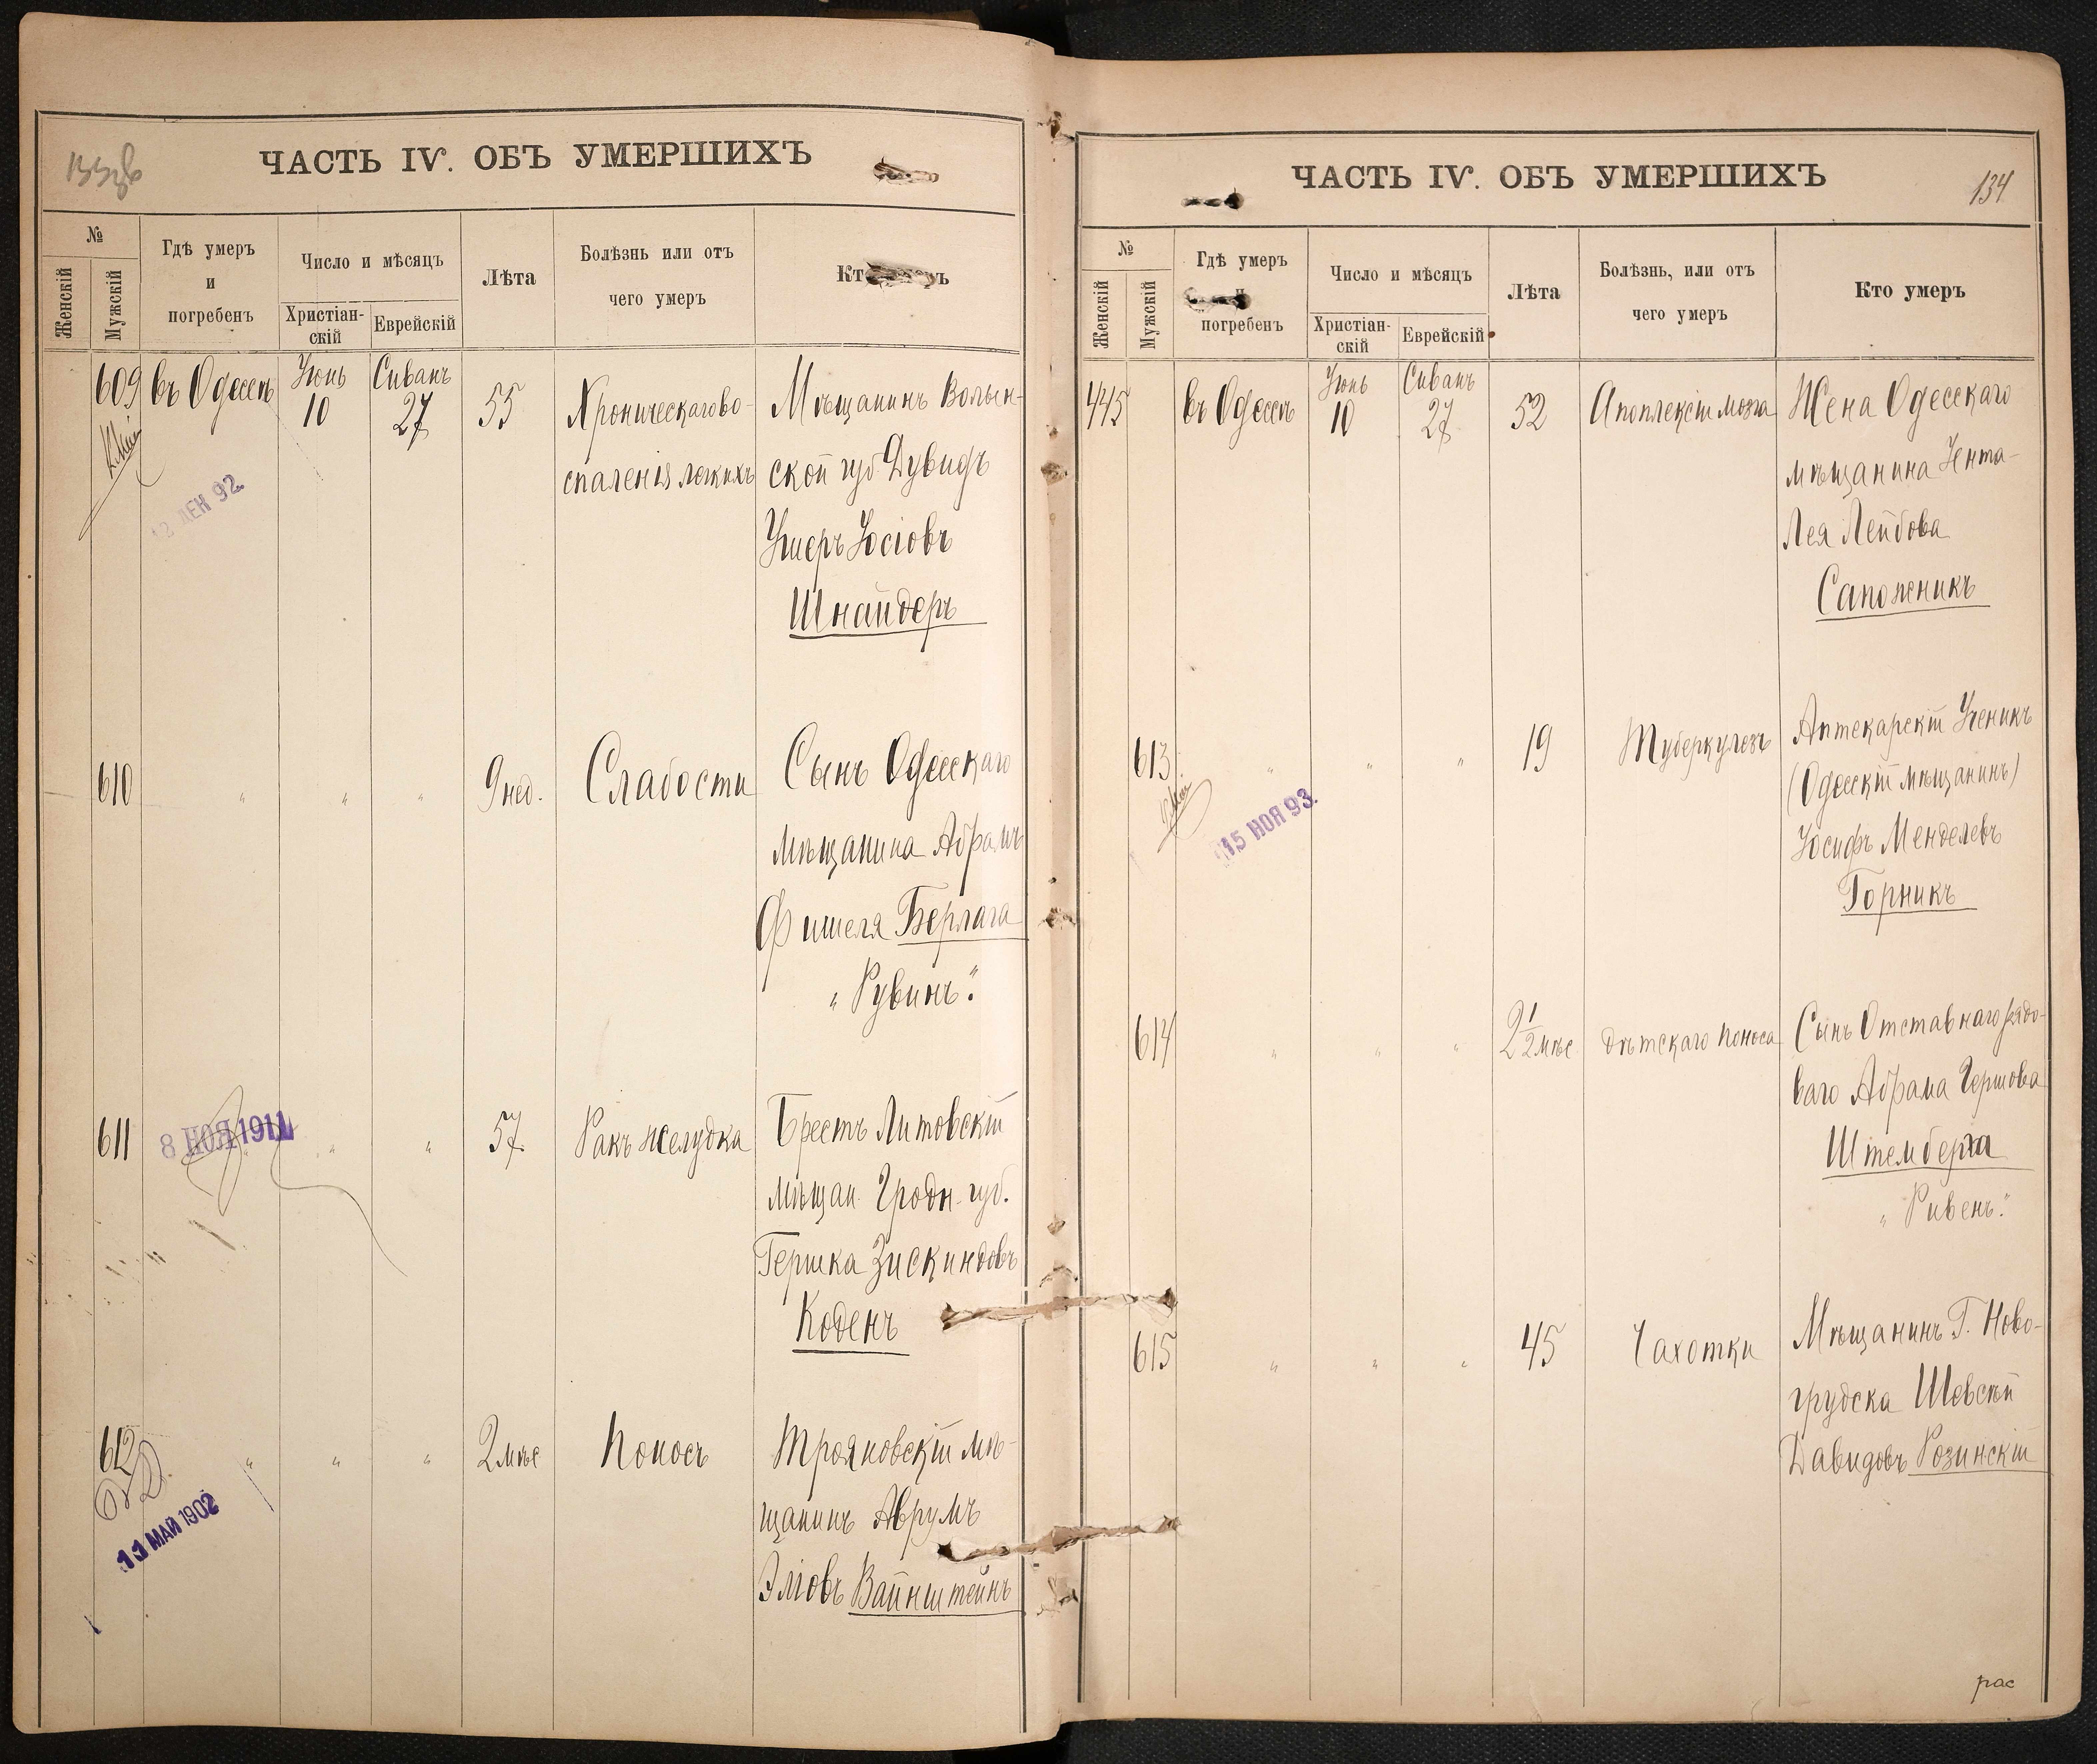 133об
ЧАСТЬ IV. ОБЪ УМЕРШИХЪ
№
Женскій
Мужскій
Гдѣ умеръ
и
погребенъ
Число и мѣсяцъ
Христіан-
скій
Еврейскій
Лѣта
Болѣзнь или отъ
чего умеръ
609 въ Одессѣ Іюнь 10 Сиванъ 27 55 Хроническаго во- Мѣщанинъ Волын-
спаленія легкихъ ской губ. Дувидъ
ДЕН 92.
Ушеръ Іосіовъ
Шнайдеръ
610 " " " 9 нед. Слабости Сынъ Одесскаго
мѣщанина Абрамъ
Фишеля Берлага
"Рувинъ".
611 8 НОЯ 1911 " " 57 Ракъ желудка Брестъ Литовскій
мѣщан. Гродн. губ.
Гершка Зискиндовъ
Коденъ
612 " " " 2 мѣс Поносъ Трояновскій мѣ-
щанинъ Аврумъ
11 МАЙ 1902
Эліовъ Вайнштейнъ
ЧАСТЬ IV. ОБЪ УМЕРШИХЪ
134
№
Женскій
Мужскій
Гдѣ умеръ
погребенъ
Число и мѣсяцъ
Христіан-
скій
Еврейскій
Лѣта
Болѣзнь, или отъ
чего умеръ
Кто умеръ
445 въ Одессѣ Іюнь 10 Сиванъ 27 52 Апоплексіи мозга Жена Одесскаго
мѣщанина Ента-
Лея Лейбова
Сапожникъ
613 " " " 19 Туберкулезъ Аптекарскій Ученикъ
(Одесскій мѣщанинъ)
15 НОЯ 93.
Іосифъ Менделевъ
Горникъ
614 " " " 2 1/2 мѣс Дѣтскаго поноса Сынъ Отставнаго рядо-
ваго Абрама Гершова
Штемберга
"Ривенъ".
615 " " " 45 Чахотки Мѣщанинъ Г. Ново-
грудска Шевскій
Давидовъ Розинскій
рас